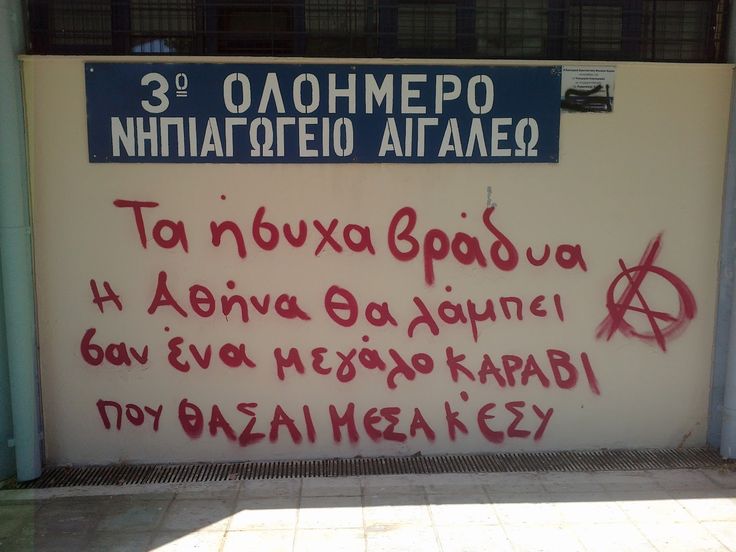 3º ΟΛΟΗΜΕΡΟ
ΝΗΠΙΑΓΩΓΕΙΟ ΑΙΓΑΛΕΩ
Τα ήσυχα βράδυα
Η Αθήνα θα λάμπει
σαν ένα μεγάλο ΚΑΡΑΒΙ
που ΘΑΣΑΙ ΜΕΣΑ Κ'ΕΣΥ